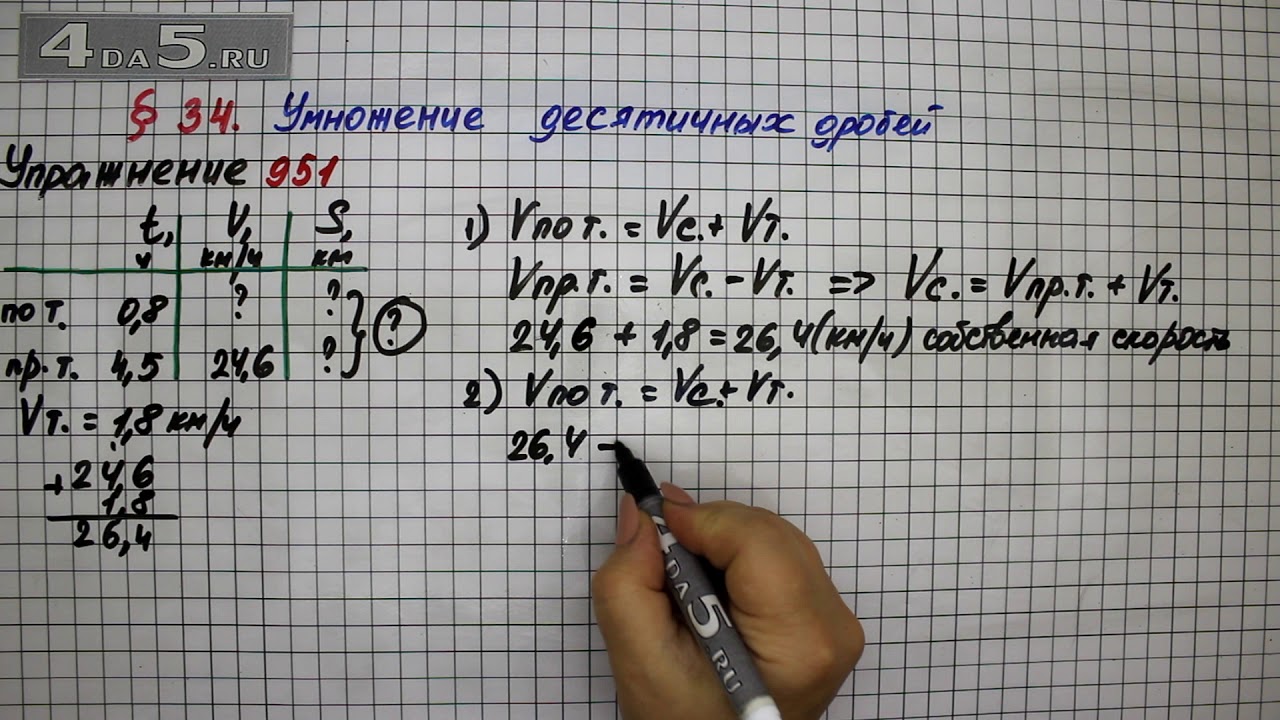 4DA5.RU
§ 34. Умножение десятичных дробей
Упражнение 951
t, V, S,
ч км/ч км
по т. 0,8 ? ?
?
пр.т. 4,5 24,6 ?
Vт. = 1,8 км/ч
+ 24,6
1,8
26,4
1) Vпо т. = Vс. + Vт.
Vпр.т. = Vс. - Vт. => Vс. = Vпр.т. + Vт.
24,6 + 1,8 = 26,4 (км/ч) собственная скорость
2) Vпо т. = Vс. + Vт.
26,4
4DA5.RU